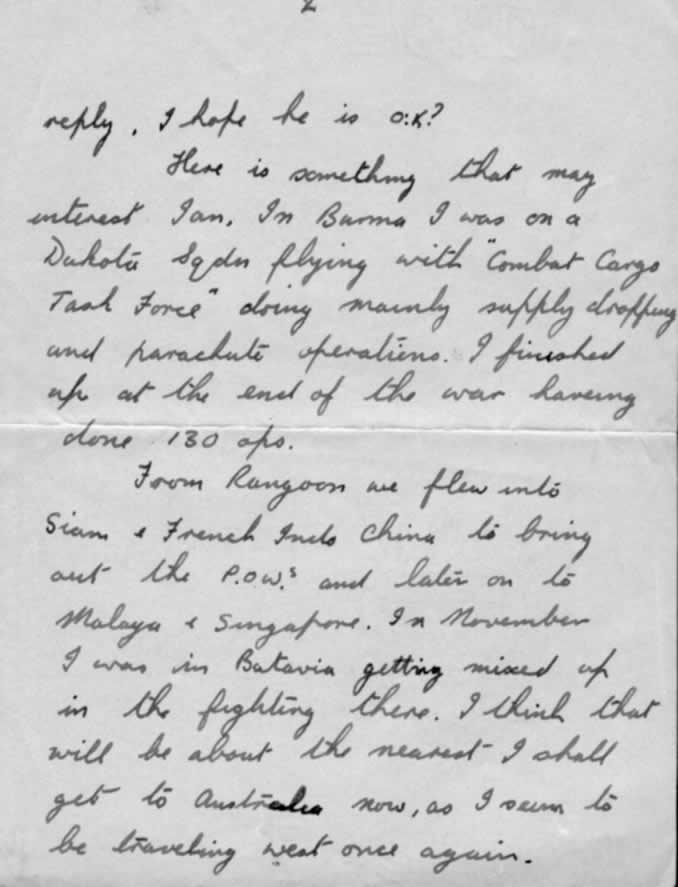 2
reply. I hope he is O.K?
Here is something that may
interest Ian. In Burma I was on a
Dakota Sqdn flying with "Combat Cargo
Task Force" doing mainly supply dropping
and parachute operations. I finished
up at the end of the war haveing
done 130 ops.
From Rangoon we flew into
Siam & French Indo China to bring
out the P.O.W.s and later on to
Malaya & Singapore. In November
I was in Batavia getting mixed up
in the fighting there. I think that
will be about the nearest I shall
get to Australia now, as I seem to
be traveling west once again.